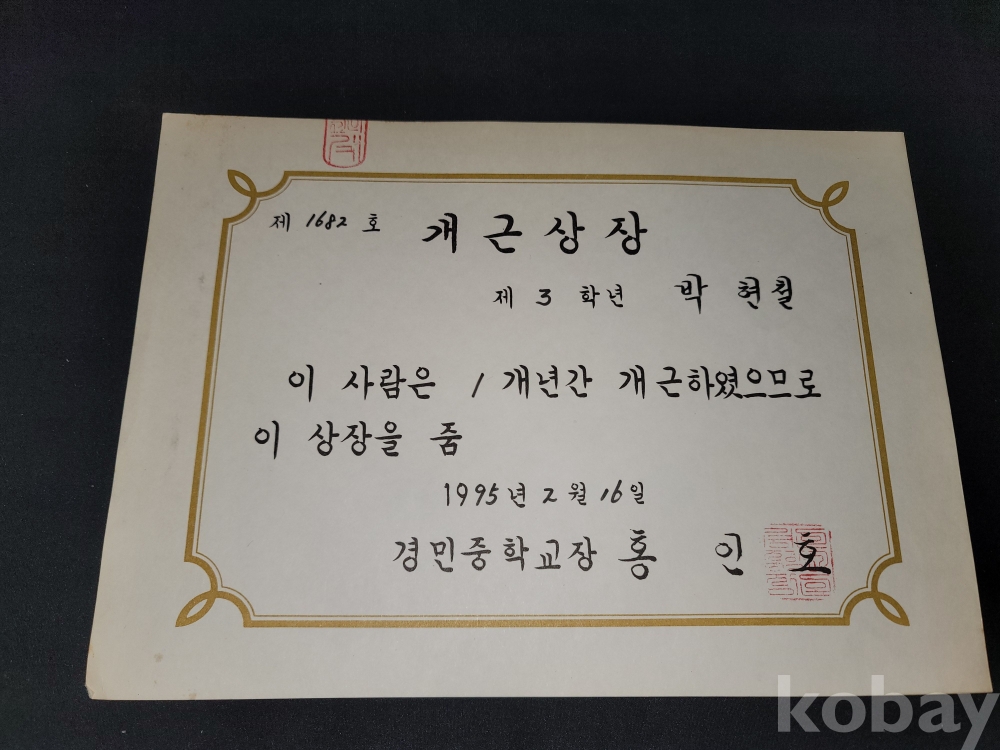 제 1682 호 개근상장
제 3 학년 박현철
이 사람은 1 개년간 개근하였으므로
이 상장을 줌
1995년 2월 16일
경민중학교장 홍인호
kobay